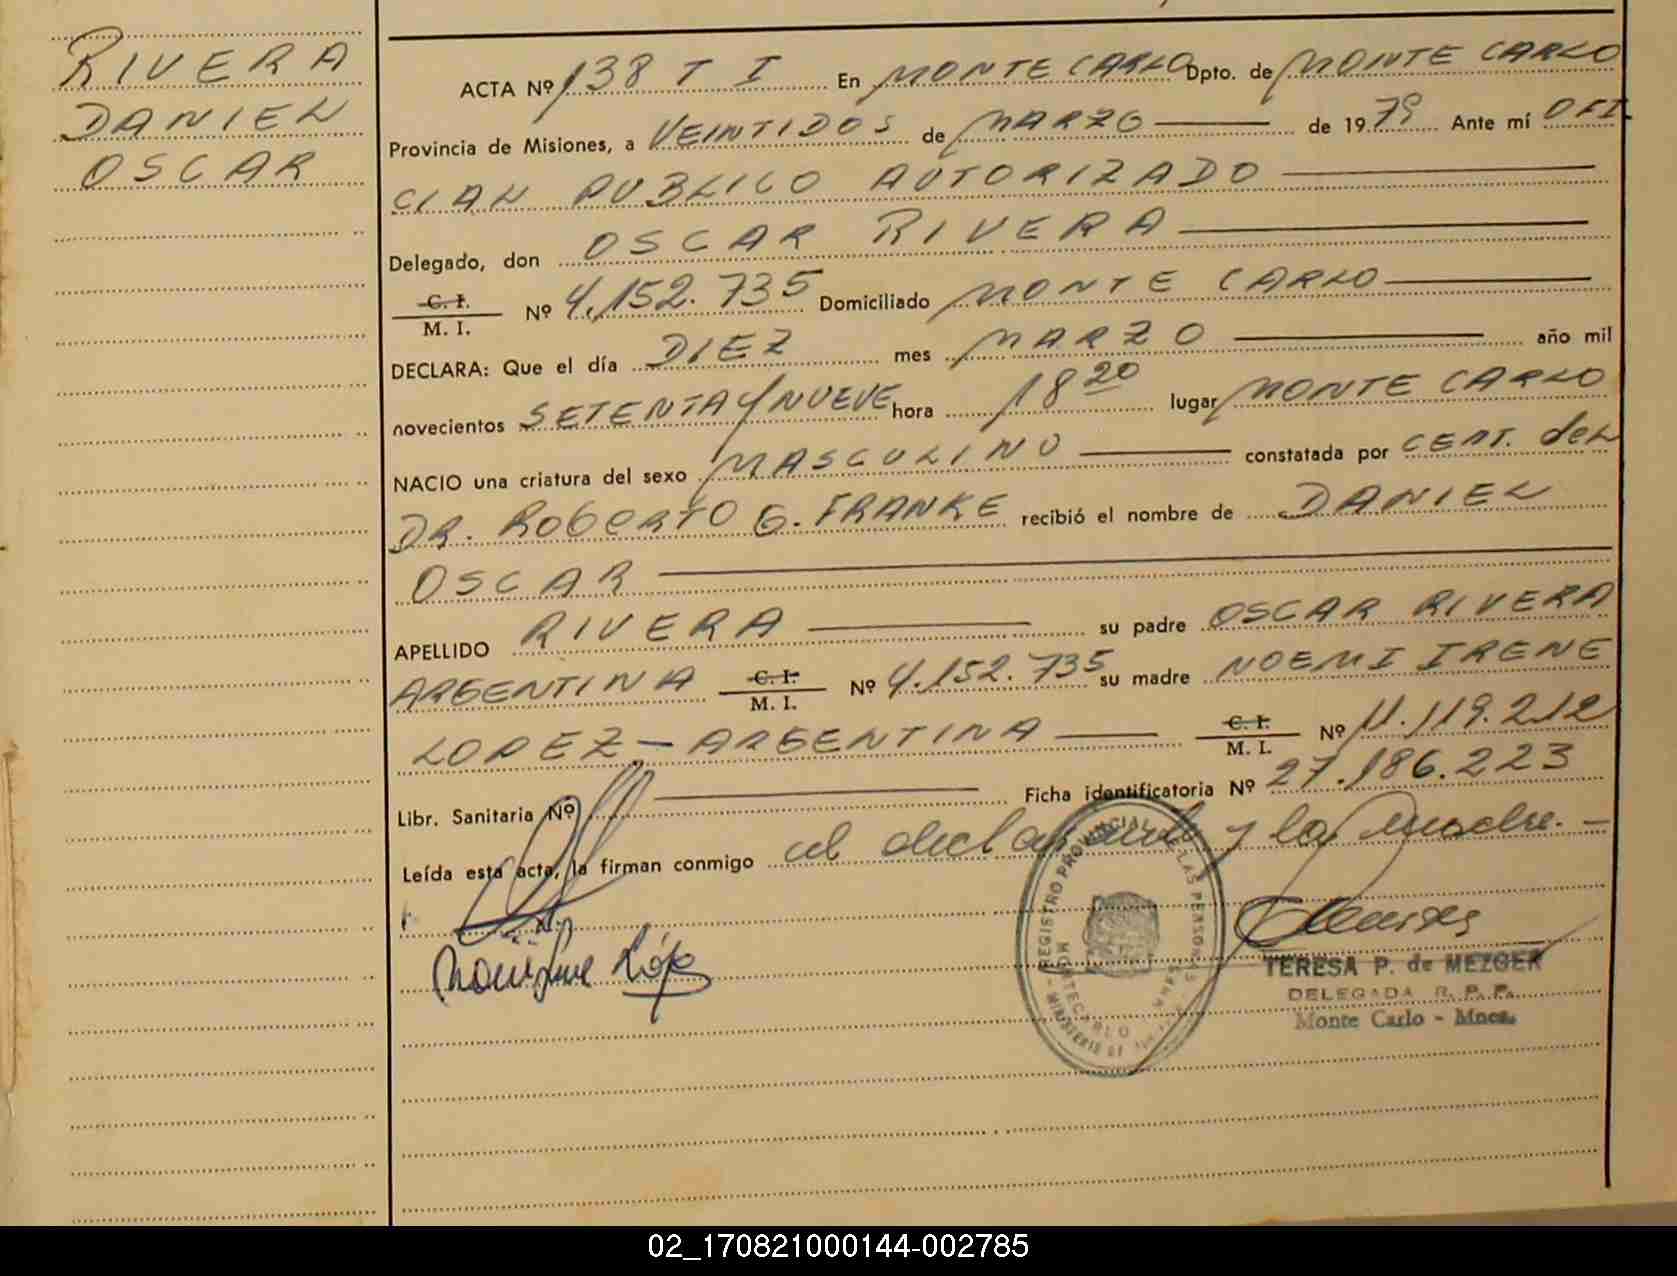 RIVERA
DANIEL
OSCAR
ACTA Nº 138 T I En MONTE CARLO Dpto. de MONTE CARLO
Provincia de Misiones, a VEINTIDOS de MARZO de 1979 Ante mí OFI
CIAL PUBLICO AUTORIZADO
Delegado, don OSCAR RIVERA
C. I.
M. I. Nº 4.152.735 Domiciliado MONTE CARLO
DECLARA: Que el día DIEZ mes MARZO año mil
novecientos SETENTA Y NUEVE hora 18 20 lugar MONTE CARLO
NACIO una criatura del sexo MASCULINO constatada por CERT. del
DR. ROBERTO G. FRANKE recibió el nombre de DANIEL
OSCAR
APELLIDO RIVERA su padre OSCAR RIVERA
ARGENTINA C. I. M. I. Nº 4.152.735 su madre NOEMI IRENE
LOPEZ - ARGENTINA C. I. M. I. Nº 11.119.212
Libr. Sanitaria Nº Ficha identificatoria Nº 27.186.223
Leída esta acta, la firman conmigo el declarante y la madre. -
REGISTRO PROVINCIAL DE LAS PERSONAS
MONTECARLO
MINISTERIO DE
TERESA P. de MEZGER
DELEGADA R. P. P.
Monte Carlo - Mnes.
02_170821000144-002785